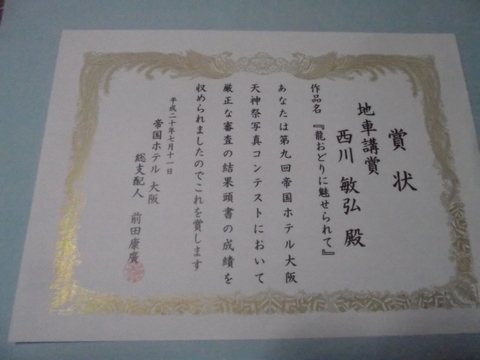 賞状
地車講賞
西川 敏弘 殿
作品名『龍おどりに魅せられて』
あなたは第九回帝国ホテル大阪
天神祭写真コンテストにおいて
厳正な審査の結果頭書の成績を
収められましたのでこれを賞します
平成二十年七月十一日
帝国ホテル 大阪
総支配人 前田康廣